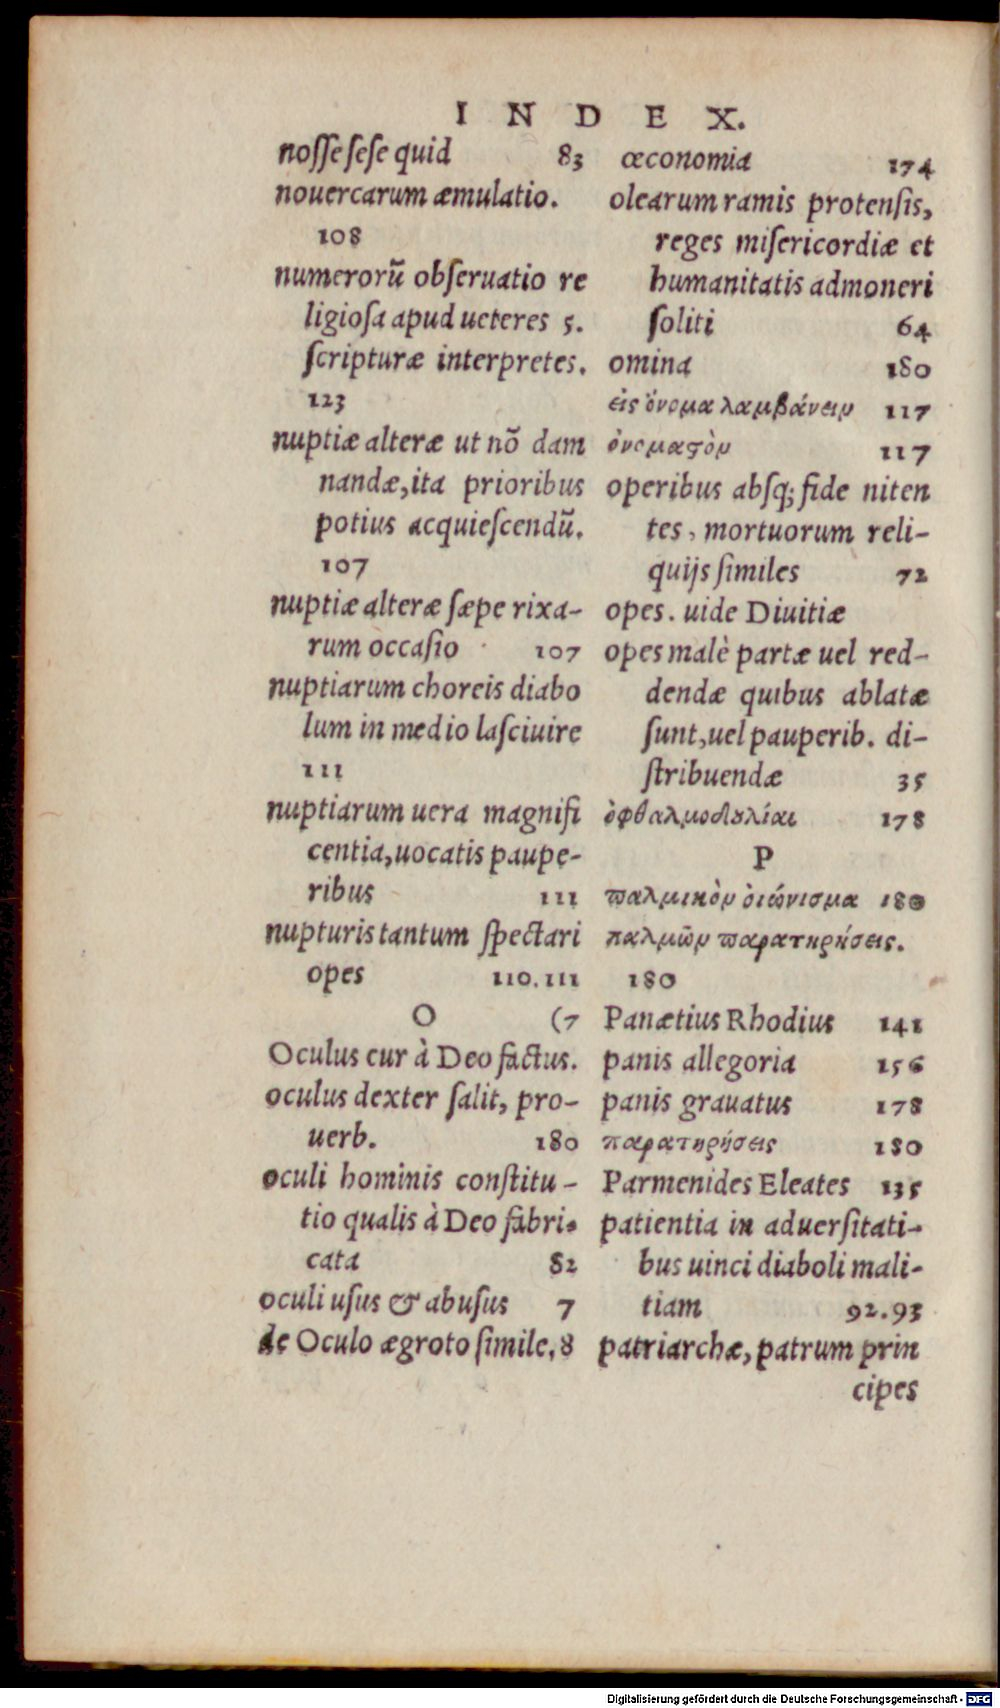 INDEX.
nosse sese quid 83
nouercarum æmulatio.
108
numerorũ obseruatio re
ligiosa apud ueteres 5.
scripturæ interpretes.
123
nuptiæ alteræ ut nõ dam
nandæ, ita prioribus
potius acquiescendũ.
107
nuptiæ alteræ sæpe rixa-
rum occasio 107
nuptiarum choreis diabo
lum in medio lasciuire
111
nuptiarum uera magnifi
centia, uocatis paupe-
ribus 111
nupturis tantum spectari
opes 110.111
O (7
Oculus cur à Deo factus.
oculus dexter salit, pro-
uerb. 180
oculi hominis constitu-
tio qualis à Deo fabri-
cata 82
oculi usus & abusus 7
de Oculo ægroto simile. 8
œconomia 174
olearum ramis protensis,
reges misericordiæ et
humanitatis admoneri
soliti 64
omina 180
εἰς ὄνομα λαμβάνειν 117
ὀνομαϛὸν 117
operibus absq; fide niten
tes, mortuorum reli-
quijs similes 72
opes. uide Diuitiæ
opes malè partæ uel red-
dendæ quibus ablatæ
sunt, uel pauperib. di-
stribuendæ 35
ὀφθαλμοδȣλίαι 178
P
παλμικὸν οἰώνισμα 180
παλμῶν παρατηρήσεις.
180
Panætius Rhodius 141
panis allegoria 156
panis grauatus 178
παρατηρήσεις 180
Parmenides Eleates 135
patientia in aduersitati-
bus uinci diaboli mali-
tiam 92.93
patriarchæ, patrum prin
cipes
Digitalisierung gefördert durch die Deutsche Forschungsgemeinschaft - DFG